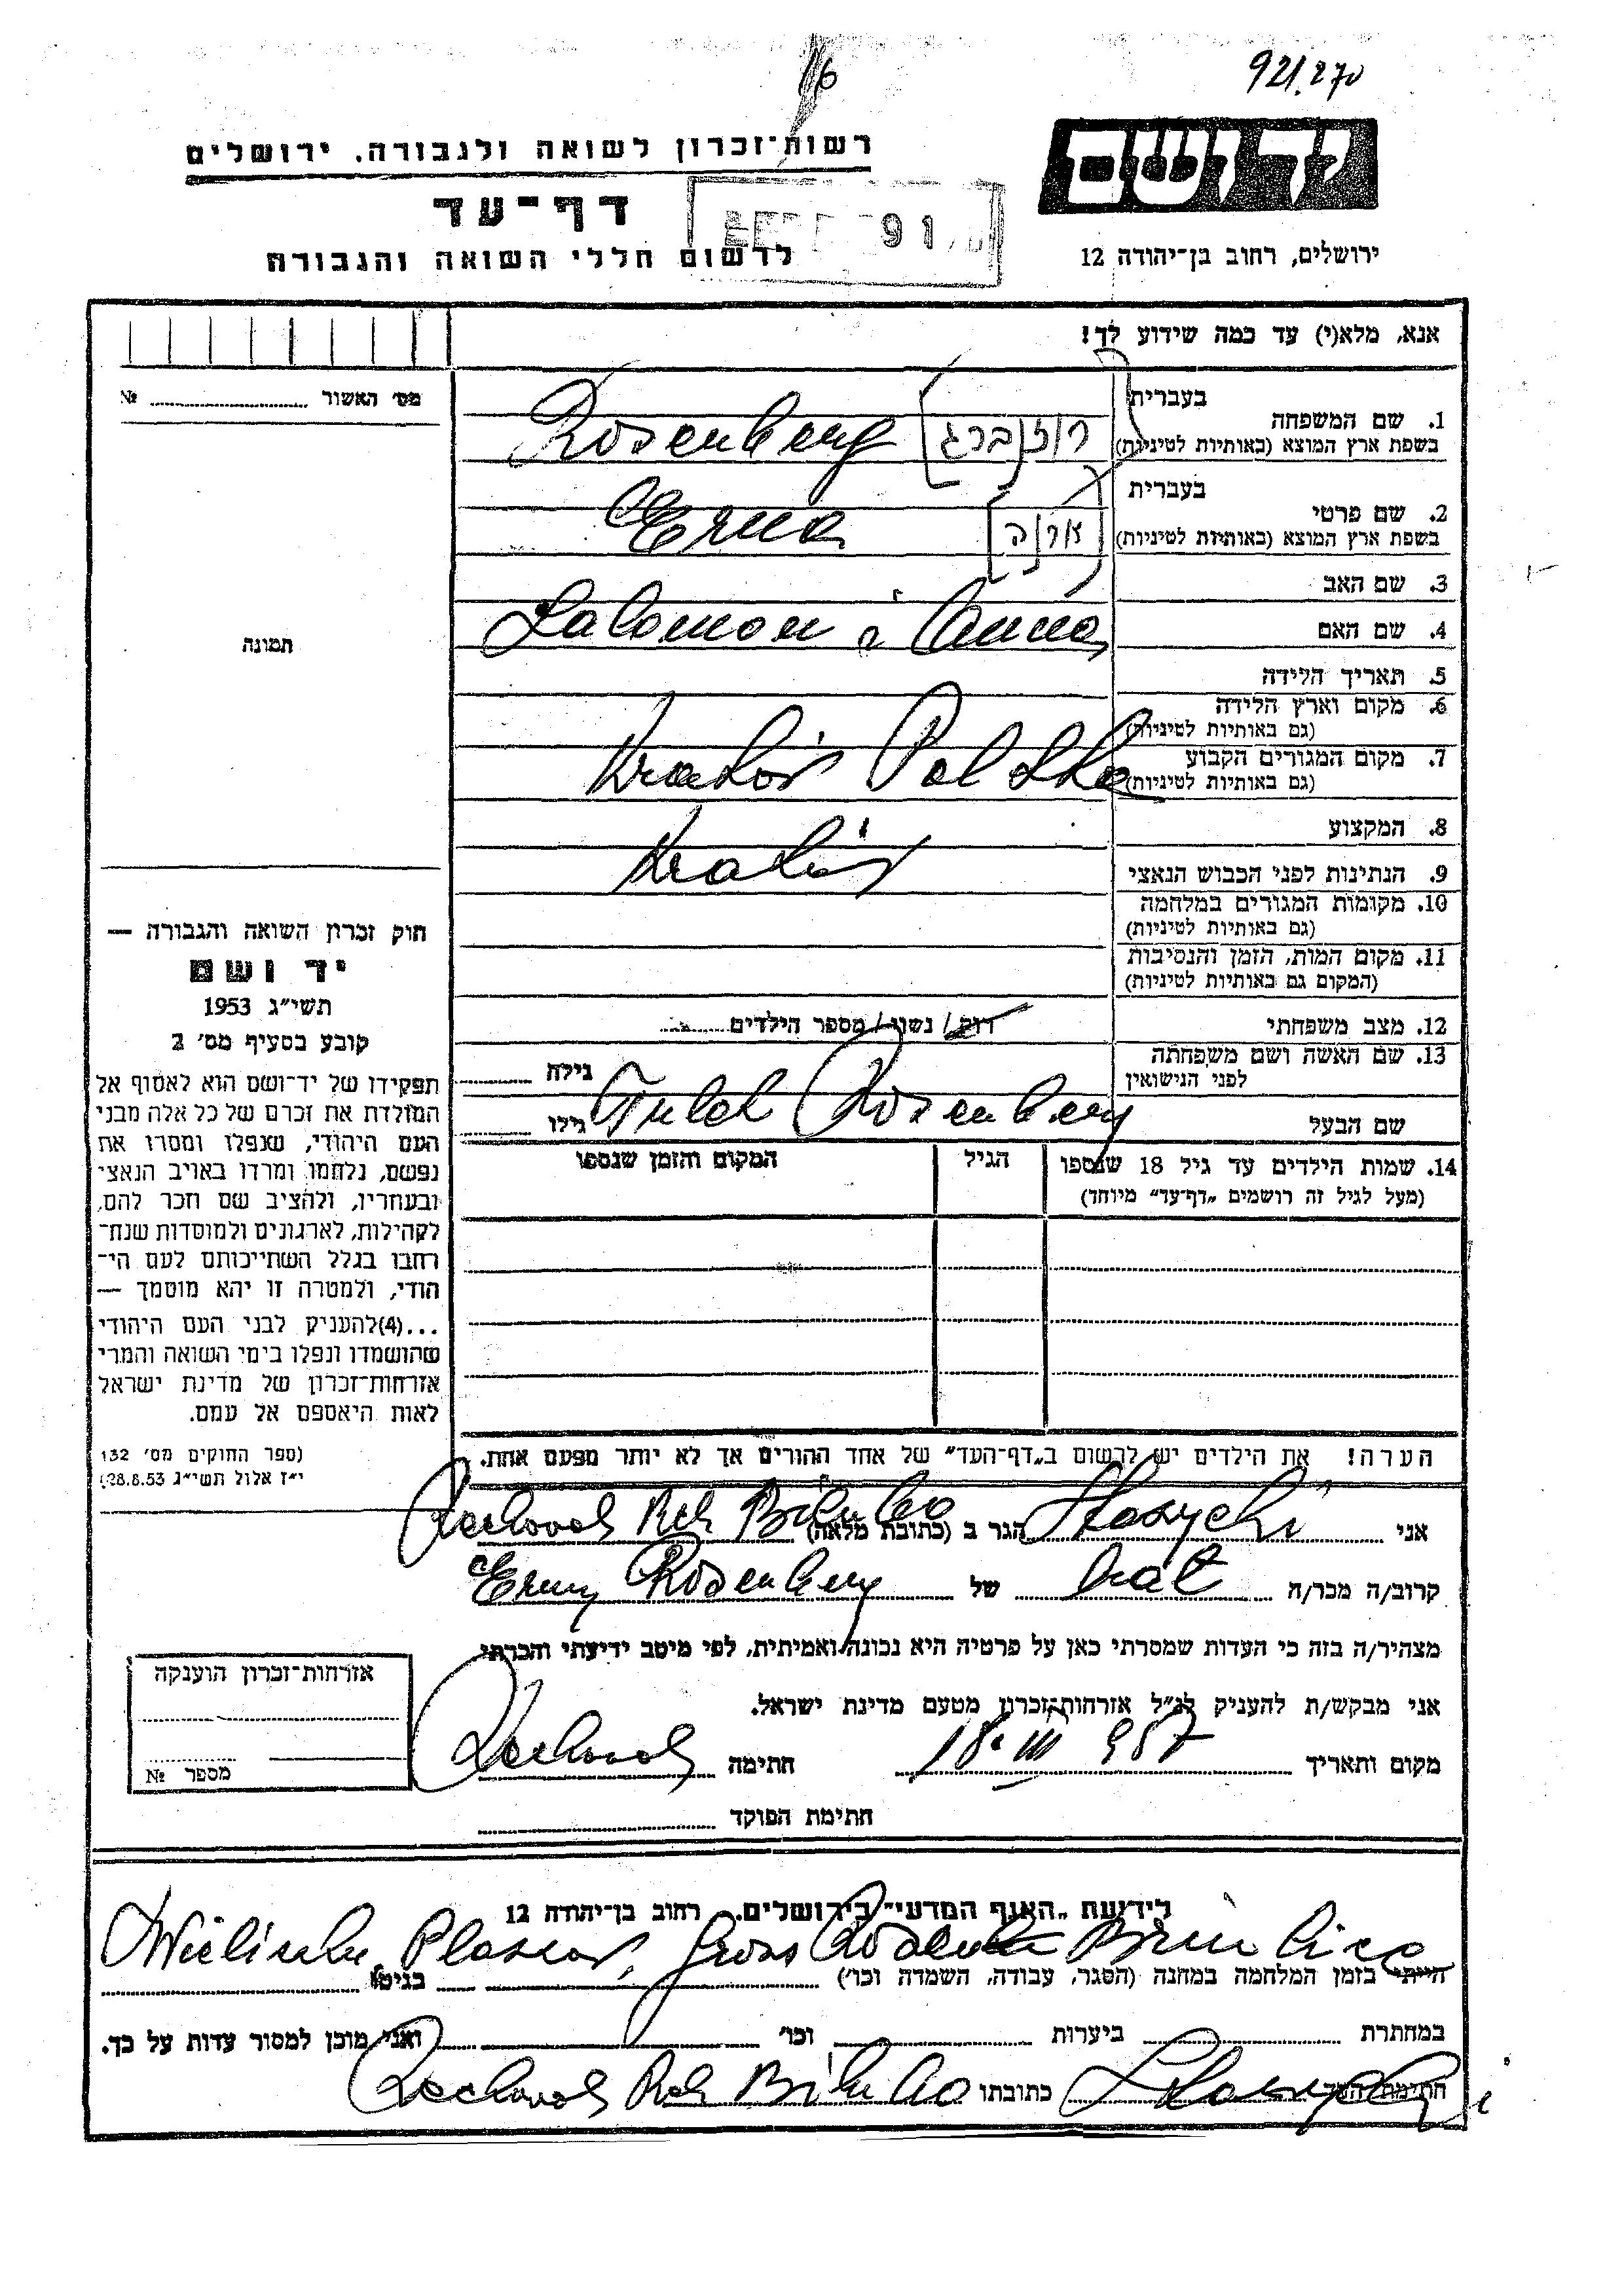 16
921.270
רשות־זכרון לשואה ולגבורה, ירושלים
יד ושם
דף־עד
91
לרשום חללי השואה והגבורה
ירושלים, רחוב בן־יהודה 12
אנא, מלא(י) עד כמה שידוע לך!
מס׳ האשור № 
בעברית
1. שם המשפחה
בשפת ארץ המוצא (באותיות לטיניות)
Rosenberg [רוזנברג]
בעברית
2. שם פרטי
בשפת ארץ המוצא (באותיות לטיניות)
Erna [ארנה]
3. שם האב
4. שם האם
Salomon i Anna
תמונה
5. תאריך הלידה
6. מקום וארץ הלידה
(גם באותיות לטיניות)
7. מקום המגורים הקבוע
(גם באותיות לטיניות)
Kraków Polska
8. המקצוע
9. הנתינות לפני הכבוש הנאצי
Kraków
10. מקומות המגורים במלחמה
(גם באותיות לטיניות)
11. מקום המות, הזמן והנסיבות
(המקום גם באותיות לטיניות)
12. מצב משפחתי
רוק / נשוי / מספר הילדים
13. שם האשה ושם משפחתה
לפני הנישואין
גילה
שם הבעל
Rosenberg
גילו
14. שמות הילדים עד גיל 18 שנספו
(מעל לגיל זה רושמים „דף־עד” מיוחד)
הגיל
המקום והזמן שנספו
חוק זכרון השואה והגבורה —
יד ושם
תשי״ג 1953
קובע בסעיף מס׳ 2
תפקידו של יד־ושם הוא לאסוף אל
המולדת את זכרם של כל אלה מבני
העם היהודי, שנפלו ומסרו את
נפשם, נלחמו ומרדו באויב הנאצי
ובעוזריו, ולהציב שם וזכר להם,
לקהילות, לארגונים ולמוסדות שנח־
רבו בגלל השתייכותם לעם הי־
הודי, ולמטרה זו יהא מוסמך —
...(4)להעניק לבני העם היהודי
שהושמדו ונפלו בימי השואה והמרי
אזרחות־זכרון של מדינת ישראל
לאות היאספם אל עמם.
(ספר החוקים מס׳ 132
י״ז אלול תשי״ג 28.8.53)
הערה! את הילדים יש לרשום ב„דף־העד” של אחד ההורים אך לא יותר מפעם אחת.
אני
הגר ב (כתובת מלאה) Rechovoth Reh
קרוב/ה מכר/ה brat של Erny Rosenberg
מצהיר/ה בזה כי העדות שמסרתי כאן על פרטיה היא נכונה ואמיתית, לפי מיטב ידיעתי והכרתי.
אני מבקש/ת להעניק לנ״ל אזרחות־זכרון מטעם מדינת ישראל.
מקום ותאריך 18. III 957 חתימה
חתימת הפוקד
אזרחות־זכרון הוענקה
מספר №
לידיעת „האגף המדעי” בירושלים, רחוב בן־יהודה 12
Wieliczka Plaszow, Gross Rosen Brinlica
הייתי בזמן המלחמה במחנה (הסגר, עבודה, השמדה וכו׳) בגיטו
במחתרת ביערות וכו׳ ואני מוכן למסור עדות על כך.
חתימת העד כתובתו